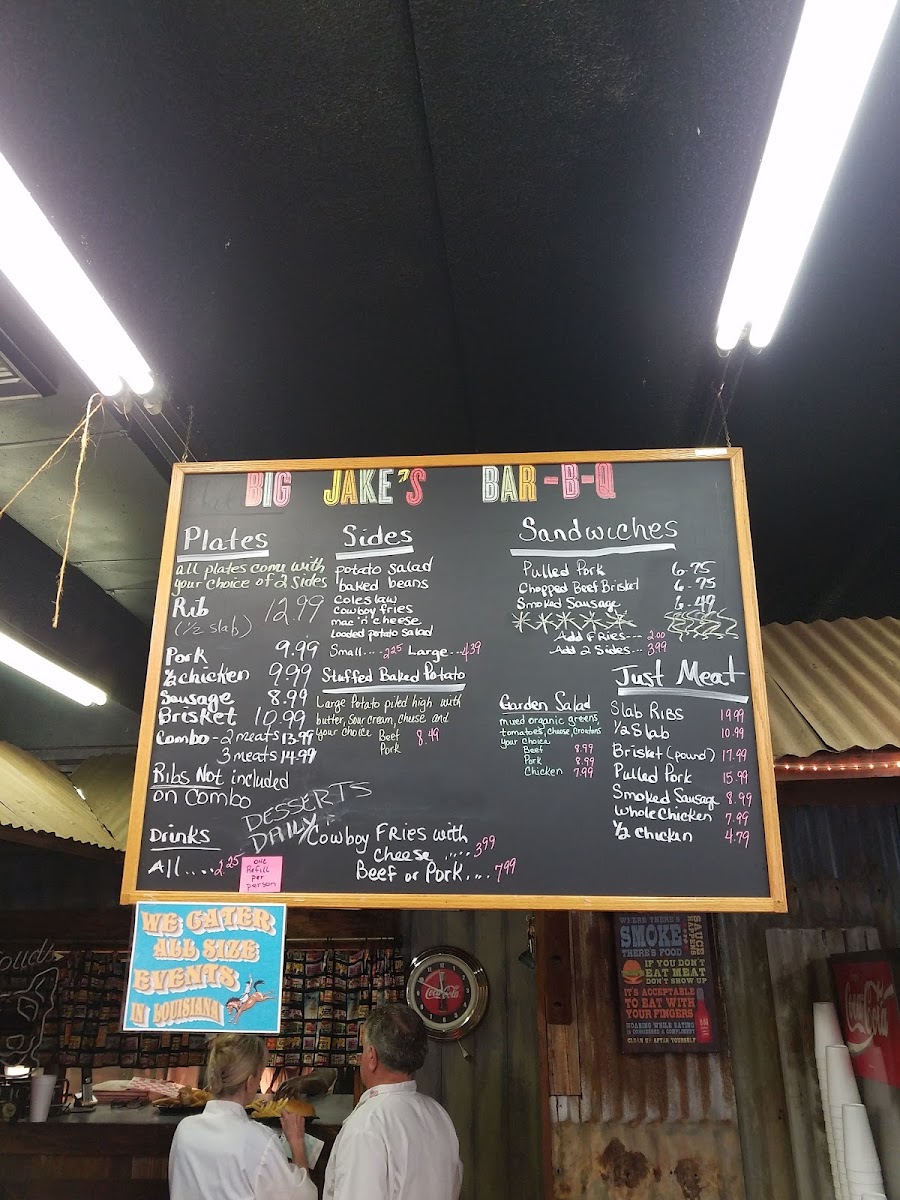 BIG JAKE'S BAR-B-Q
Plates
all plates come with
your choice of 2 sides
Rib 12.99
(1/2 slab)
Pork 9.99
1/2 chicken 9.99
Sausage 8.99
Brisket 10.99
Combo - 2 meats 13.99
3 meats 14.99
Ribs Not included
on Combo
Drinks
All.... 2.25
one
Refill
per
person
DESSERTS
DAILY
Sides
potato salad
baked beans
coleslaw
cowboy fries
mac 'n' cheese
Loaded potato salad
Small.... 2.25 Large--- 4.39
Stuffed Baked Potato
Large Potato piled high with
butter, sour cream, cheese and
your choice Beef
Pork 8.49
Cowboy FRies with
cheese ..... 3.99
Beef or Pork.... 7.99
Sandwiches
Pulled Pork 6.75
Chopped Beef Brisket 6.75
Smoked Sausage 6.49
Add FRies--- 2.00
Add 2 Sides--- 3.99
Garden Salad
mixed organic greens,
tomatoes, cheese, Croutons
your choice
Beef 8.99
Pork 8.99
Chicken 7.99
Just Meat
Slab Ribs 19.99
1/2 Slab 10.99
Brisket (pound) 17.99
Pulled Pork 15.99
Smoked Sausage 8.99
Whole Chicken 7.99
1/2 chicken 4.79
WE CATER
ALL SIZE
EVENTS
IN LOUISIANA
Coca-Cola
WHERE THERE'S
SMOKE
THERE'S FOOD
SAUCE
HAPPENS
IF YOU DON'T
EAT MEAT
DON'T SHOW UP
IT'S ACCEPTABLE
TO EAT WITH
YOUR FINGERS
MOANING WHILE EATING
IS CONSIDERED A COMPLIMENT
CLEAN UP AFTER YOURSELF
Coca-Cola